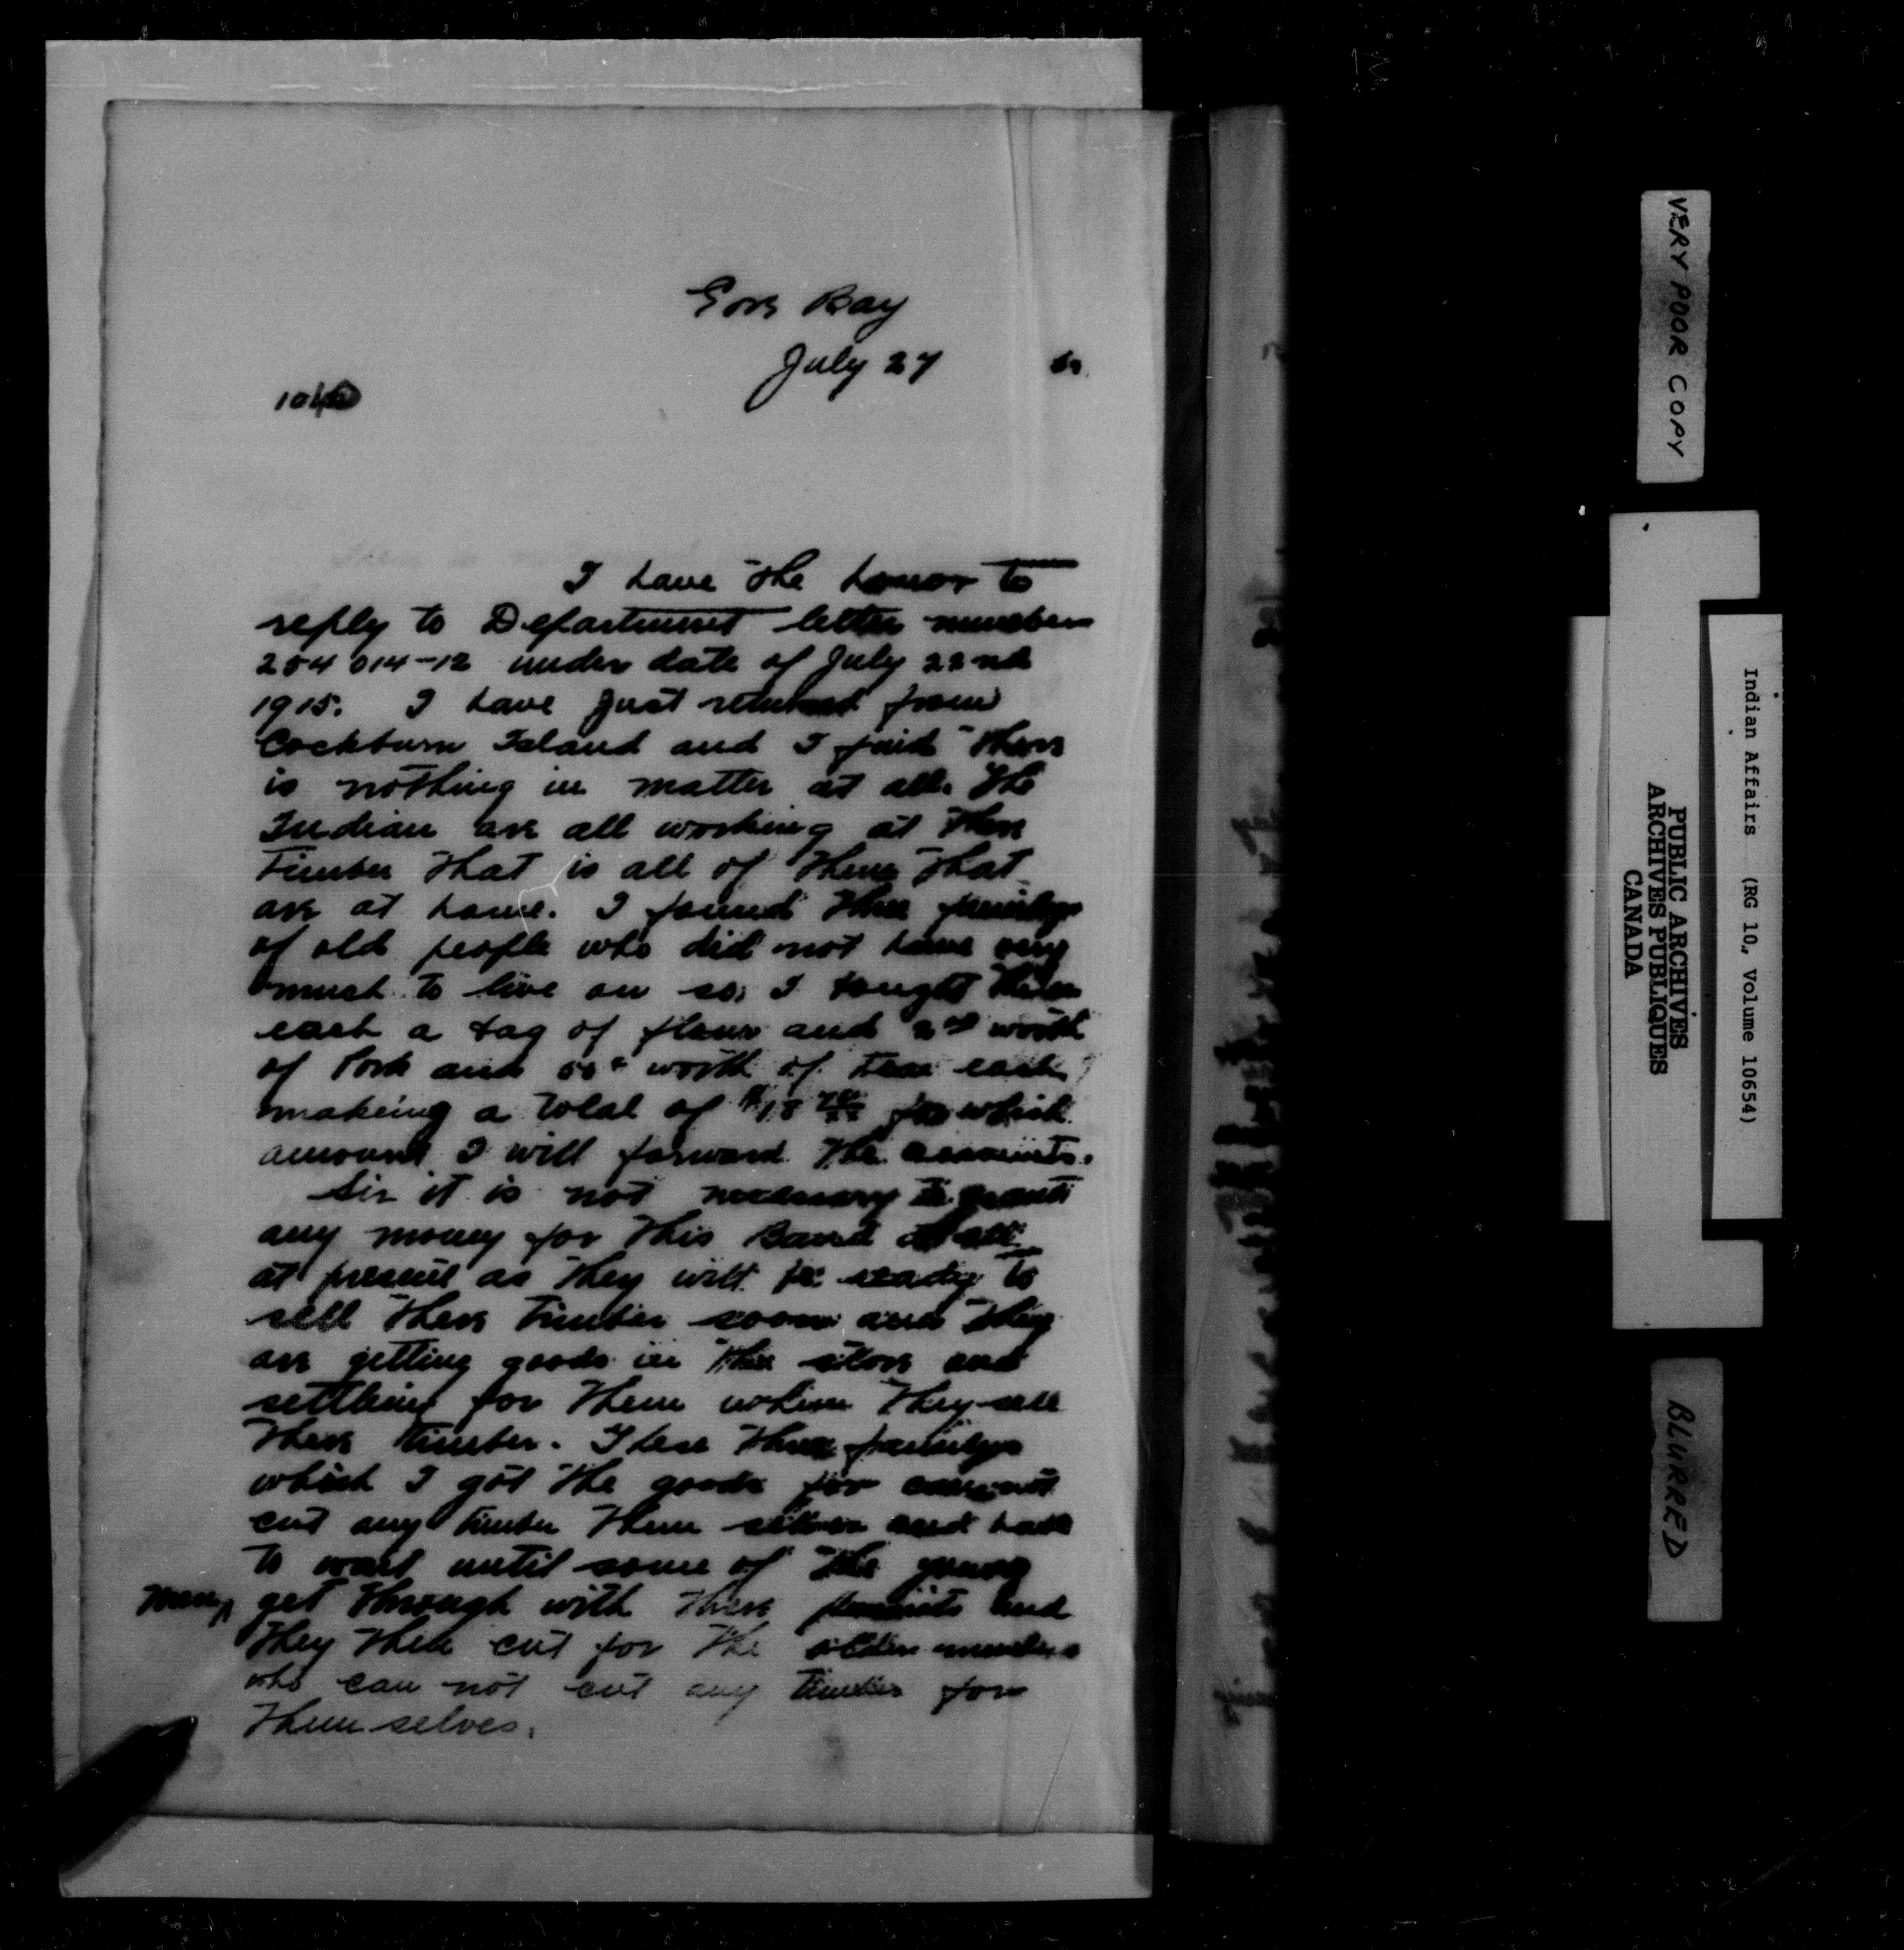 Gore Bay
July 27
104
I have the honor to
reply to Department letter number
254 014-12 under date of July 22nd
1915. I have just returned from
Cockburn Island and I find there
is nothing in matter at all. The
Indian are all working at there
timber that is all of them that
are at home. I found three familys
of old people who did not have very
much to live on so I bought them
each a bag of flour and 2 worth
of Pork and 50c worth of tea each
making a total of $18 for which
amount I will forward the accounts.
Sir it is not necessary to grant
any money for this Band at all
at present as they will be ready to
sell there timber soon and they
are getting goods in the store and
settleing for them when they sell
there timber. These three familys
which I got the goods for can not
cut any timber them selves and have
to wait until some of the young
men get through with there permits and
they then cut for the older members
who can not cut any timber for
them selves.
VERY POOR COPY
Indian Affairs (RG 10, Volume 10654)
PUBLIC ARCHIVES
ARCHIVES PUBLIQUES
CANADA
BLURRED